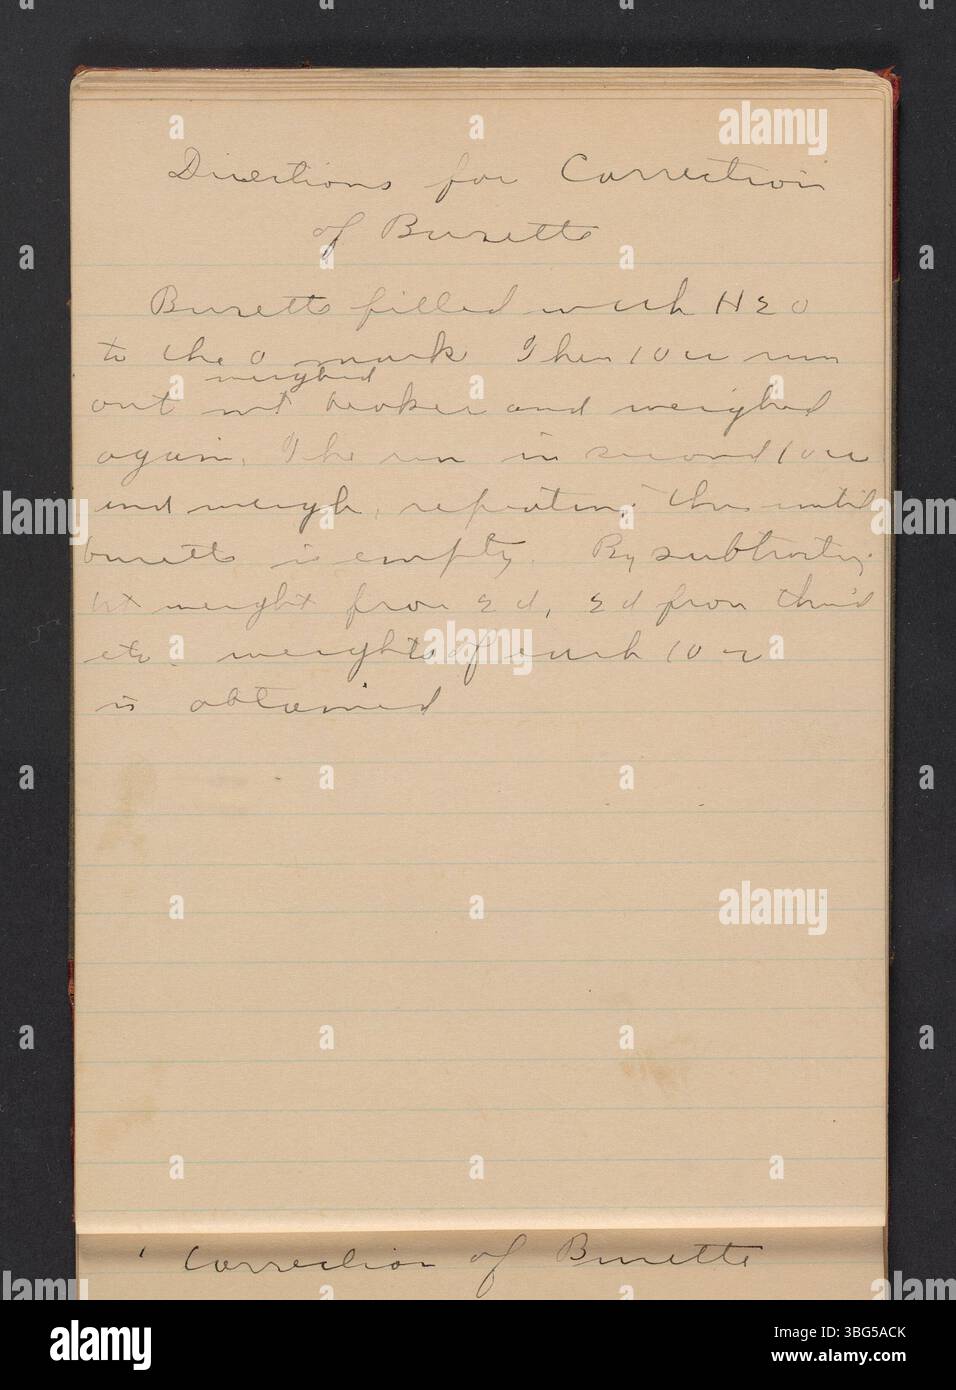 Directions for Correction
of Burette
Burette filled with H2O
to the 0 mark Then 10 cc run
weighed
out into beaker and weighed
again. The run in second 10 cc
and weigh, repeating this until
burette is empty. By subtracting
1st weight from 2d, 2d from third
etc. weights of each 10 cc
is obtained
Correction of Burette
alamy
alamy
alamy
alamy
a
Image ID: 3BG5ACK
www.alamy.com